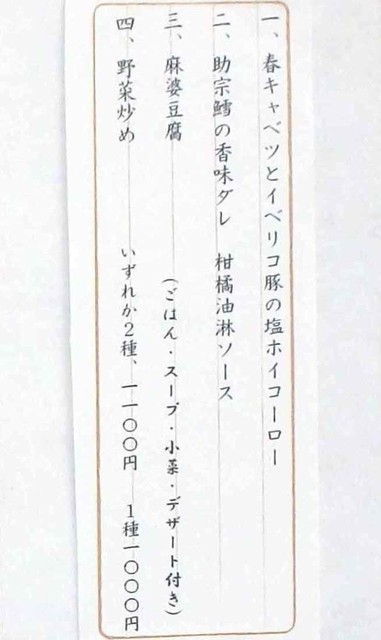 一、春キャベツとイベリコ豚の塩ホイコーロー
二、助宗鱈の香味ダレ 柑橘油淋ソース
三、麻婆豆腐 (ごはん・スープ・小菜・デザート付き)
四、野菜炒め いずれか2種、一一〇〇円 1種一〇〇〇円